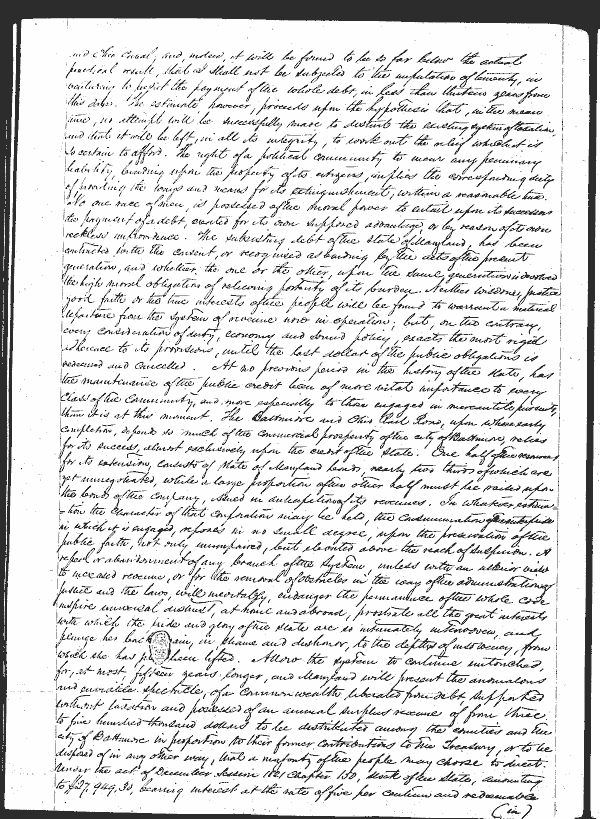 and Ohio Canal, and, indeed, it will be found to be so far below the actual
practical result, that I shall not be subjected to the imputation of temerity, in
venturing to predict the payment of the whole debt, in less than thirteen years from
this date. The estimate however, proceeds upon the hypothesis that, in the mean
time, no attempt will be successfully made to disturb the existing system of taxation,
and that it will be left, in all its integrity, to work out the relief which it is
so certain to afford. The right of a political community to incur any pecuniary
liability, binding upon the property of its citizens, implies the corresponding duty
of providing the ways and means for its extinguishment, within a reasonable time.
No one race of men, is possessed of the moral power to entail upon its successors
the payment of a debt, created for its own supposed advantage, or by reason of its own
reckless improvidence. The subsisting debt of the State of Maryland, has been
contracted by the current, or recognised as binding by the acts of the present
generation, and whether the one or the other, upon the same generation is devolved
the high moral obligation of relieving posterity of its burden. Neither wisdom, justice
good faith or the true interests of the people will be found to warrant a material
departure from the system of revenue now in operation; but, on the contrary,
every consideration of duty, economy and sound policy, exacts the most rigid
adherence to its provisions, until the last dollar of the public obligations is
redeemed and cancelled. At no previous period in the history of the State, has
the maintenance of the public credit been of more vital importance to every
class of the Community, and, more especially to those engaged in mercantile pursuits,
than it is at this moment. The Baltimore and Ohio Rail Road, upon whose early
completion, depends so much of the commercial prosperity of the city of Baltimore, relies
for its success, almost exclusively upon the credit of the State. One half of the
for its extension, consists of State of Maryland bonds, nearly two thirds of which are
yet unnegotiated, while a large proportion of the other half must be raised upon
the bonds of the Company, issued in anticipation of its revenues. In whatever estima-
-tion the character of that corporation may be held, the consummation of the enterprise
in which it is engaged, reposes in no small degree, upon the preservation of the
public faith, not only unimpaired, but elevated above the reach of suspicion. A
repeal or abandonment of any branch of the system, unless with an ulterior view
to increased revenue, or for the removal of obstacles in the way of the administration of
justice and the laws, will inevitably, endanger the permanence of the whole code
inspire universal distrust, at home and abroad, prostrate all the great interests
with which the pride and glory of the State are so intimately interwoven, and
plunge her back again, in shame and dishonor, to the depths of insolvency, from
which she has just been lifted. Allow the system to continue untouched,
for, at most, fifteen years longer, and Maryland will present the anomalous
and enviable spectacle, of a commonwealth liberated from debt supported
without taxation and possessed of an annual surplus revenue of from three
to five hundred thousand dollars to be distributed among the counties and the
city of Baltimore in proportion to their former contributions to the Treasury, or to be
disposed of in any other way, that a majority of the people may choose to direct.
Under the act of December Session 1821 Chapter 130, Stock of the State, amounting
to $27,949,30, bearing interest at the rate of five per centum and redeemable
(in)